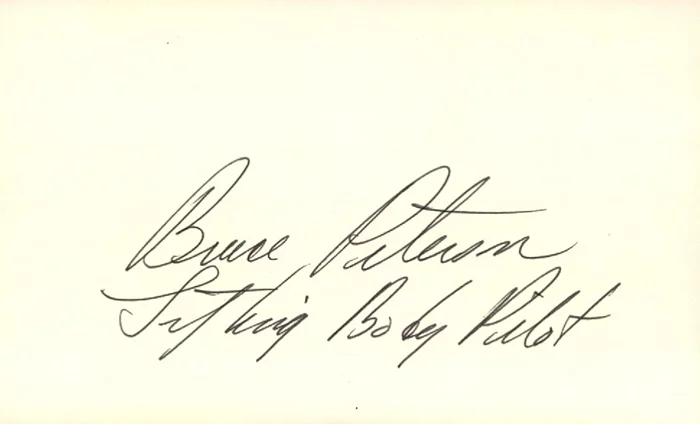 Bruce Peterson
Lifting Body Pilot